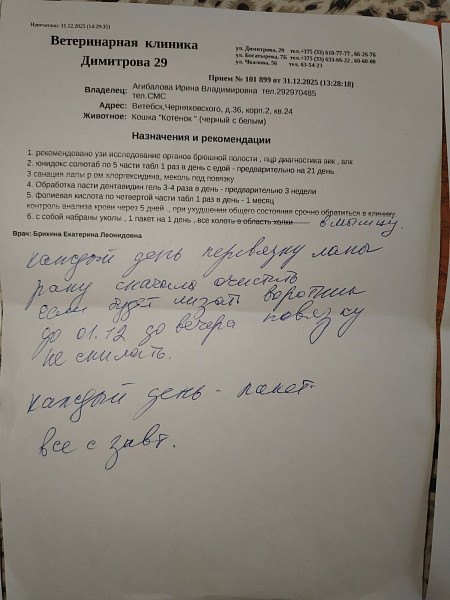 Напечатано: 31.12.2025 (14:29:35)
Ветеринарная клиника
Димитрова 29
ул. Димитрова, 29 тел.+375 (33) 610-77-77 , 66-26-76
ул. Богатырева, 7Б тел.+375 (33) 633-66-22 , 60-60-00
ул. Чкалова, 56 тел. 63-54-23
Прием № 101 899 от 31.12.2025 (13:28:18)
Владелец: Агибалова Ирина Владимировна тел.292970485
тел.СМС
Адрес: Витебск,Черняховского, д.36, корп.2, кв.24
Животное: Кошка "Котенок " (черный с белым)
Назначения и рекомендации
1. рекомендовано узи исследование органов брюшной полости , пцр диагностика вик , влк
2. юнидокс солютаб по 5 части табл 1 раз в день с едой - предварительно на 21 день
3 санация лапы р ом хлоргексидина, меколь под повязку
4. Обработка пасти дентавидин гель 3-4 раза в день - предварительно 3 недели
5. фолиевая кислота по четвертой части табл 1 раз в день - 1 месяц
контроль анализа крови через 5 дней , при ухудшении общего состояния срочно обратиться в клинику
6. с собой набраны уколы , 1 пакет на 1 день , все колоть в область холки в мышцу.
Врач: Брикина Екатерина Леонидовна
каждый день перевязку лапы
рану сначала очистить
если будет лизать воротник
до 01.12 до вечера повязку
не снимать.
каждый день - пакет
все с завт.